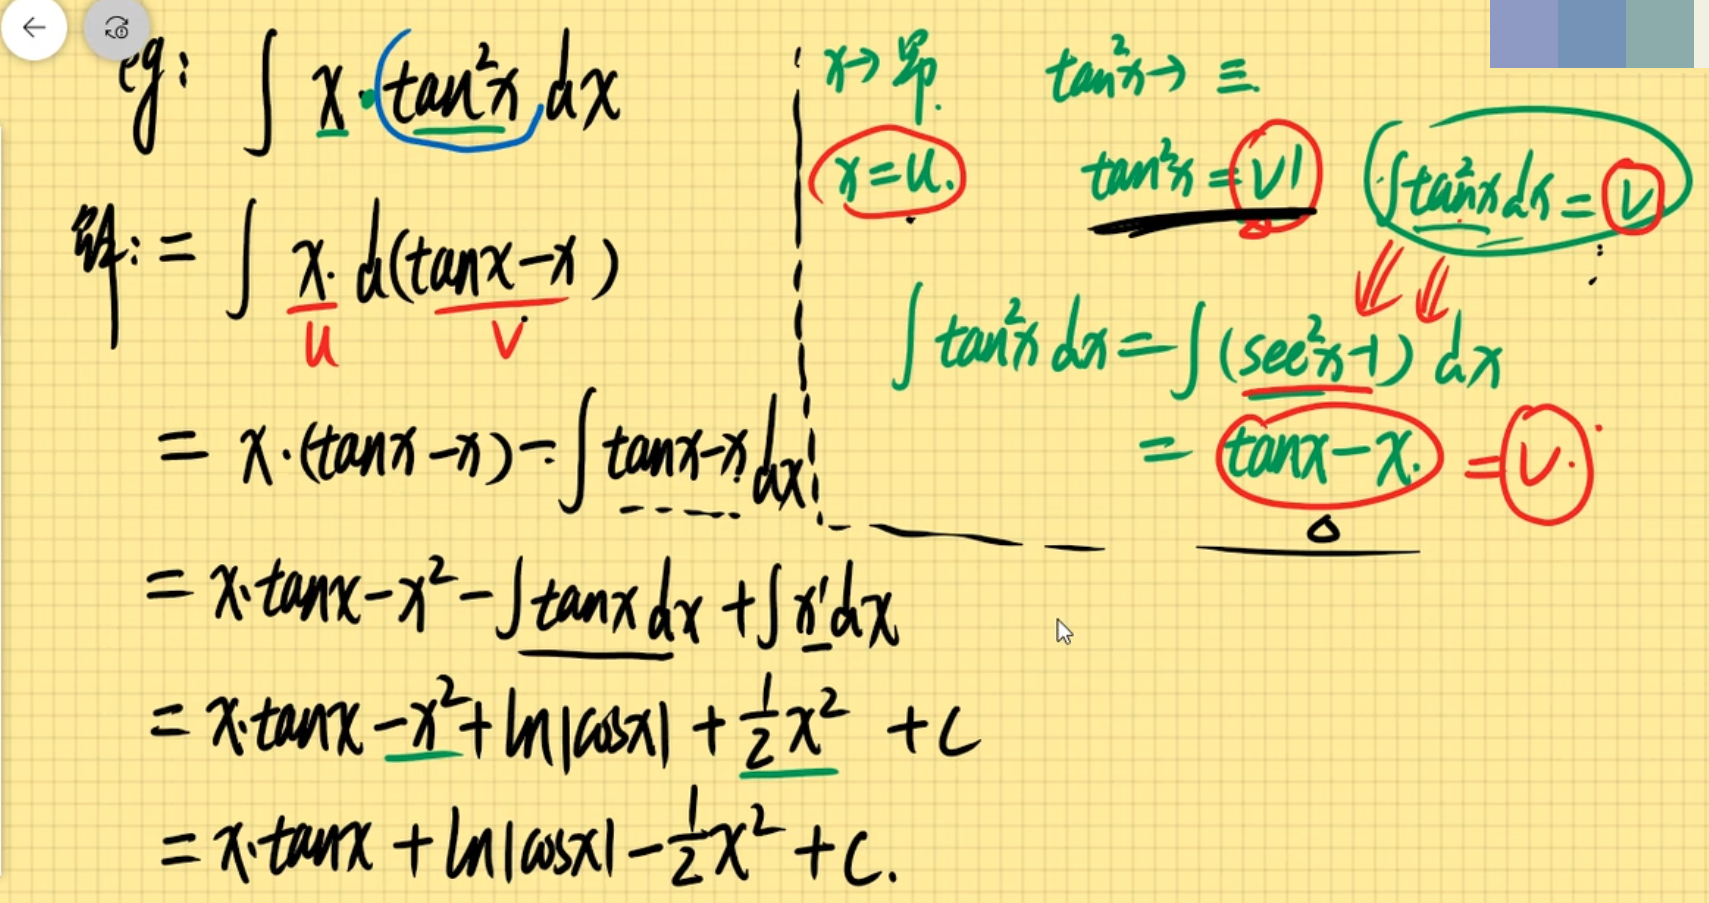 eg: ∫ x·(tan²x) dx
解: = ∫ x· d(tanx-x)
u v
= x·(tanx-x) - ∫ tanx-x dx
= x·tanx-x² - ∫tanx dx + ∫x¹dx
= x·tanx -x² + ln|cosx| + 1/2 x² + C
= x·tanx + ln|cosx| - 1/2 x² + C.
x→幂. tan²x→三.
x=u. tan²x = v' ∫tan²xdx = v
∫ tan²x dx = ∫(sec²x-1) dx
= tanx-x. = v.